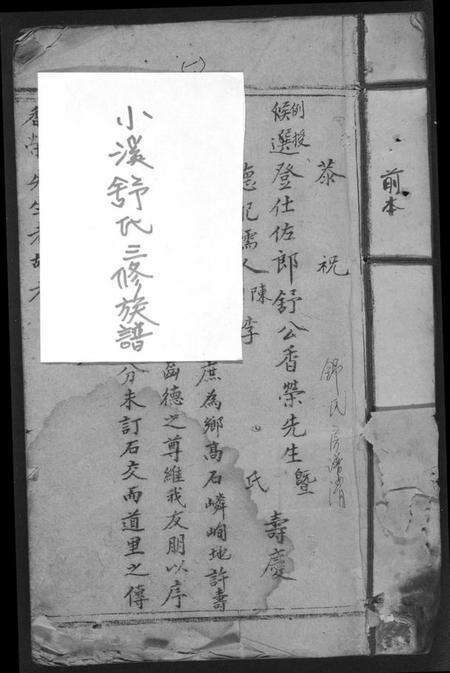 前本
恭祝
例授
候選登仕佐郎舒公香荣先生暨
德配孺人陳李氏壽慶
庶為鄉髙石嶙峋地許壽
齒德之尊維我友朋以序
分未訂石交而道里之傳
香荣先生
小溪舒氏三修族譜
(一)
舒氏